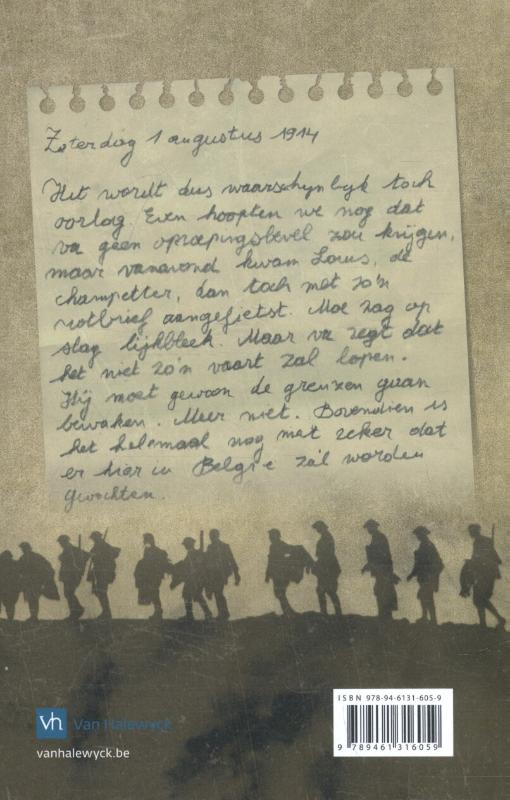 Zaterdag 1 augustus 1914
Het wordt dus waarschijnlijk toch
oorlog Even hoopten we nog dat
va geen oproepingsbevel zou krijgen,
maar vanavond kwam Louis, de
champetter, dan toch met zo'n
rotbrief aangefietst. Moe zag op
slag lijkbleek. Maar va zegt dat
het niet zo'n vaart zal lopen.
Hij moet gewoon de grenzen gaan
bewaken. Meer niet. Bovendien is
het helemaal nog niet zeker dat
er hier in België zal worden
gevochten.
vh Van Halewyck
vanhalewyck.be
ISBN 978-94-6131-605-9
9 789461 316059